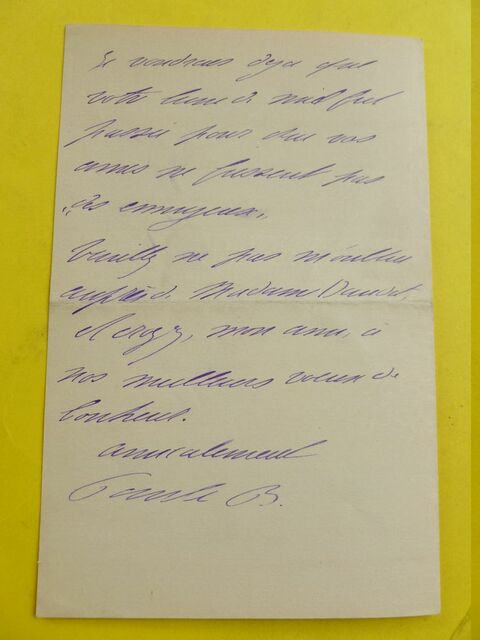 Je voudrais déjà que
votre lune de miel fut
passée pour que vos
amis ne fussent pas
"des ennuyeux".
Veuillez ne pas m'oublier
auprès de Madame
et croyez, mon ami, à
nos meilleurs voeux de
bonheur.
amicalement
B.